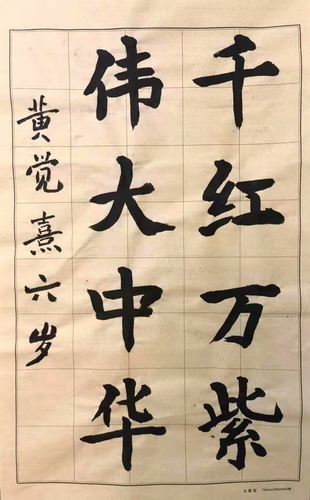 千红万紫
伟大中华
黄觉熹六岁